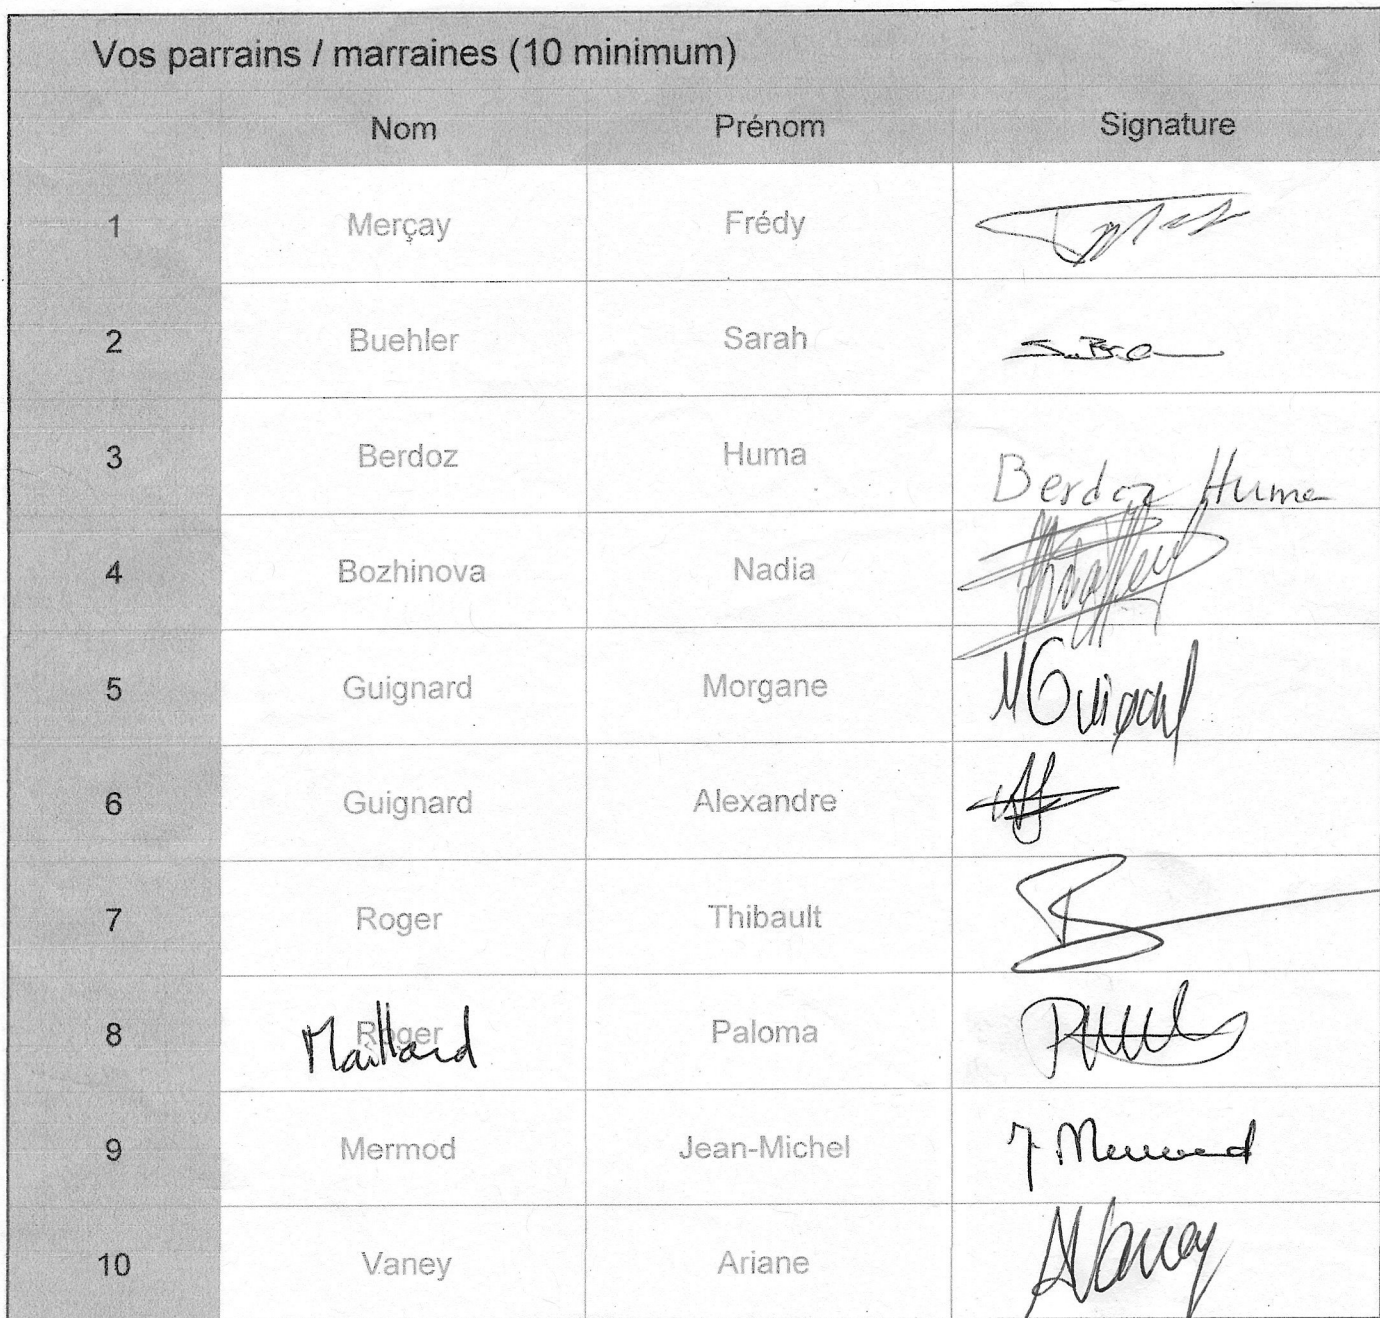 Vos parrains / marraines (10 minimum)
Nom Prénom Signature
1 Merçay Frédy
2 Buehler Sarah
3 Berdoz Huma Berdoz Huma
4 Bozhinova Nadia
5 Guignard Morgane MGuignard
6 Guignard Alexandre
7 Roger Thibault
8 Roger Maillard Paloma
9 Mermod Jean-Michel J Mermod
10 Vaney Ariane AVaney